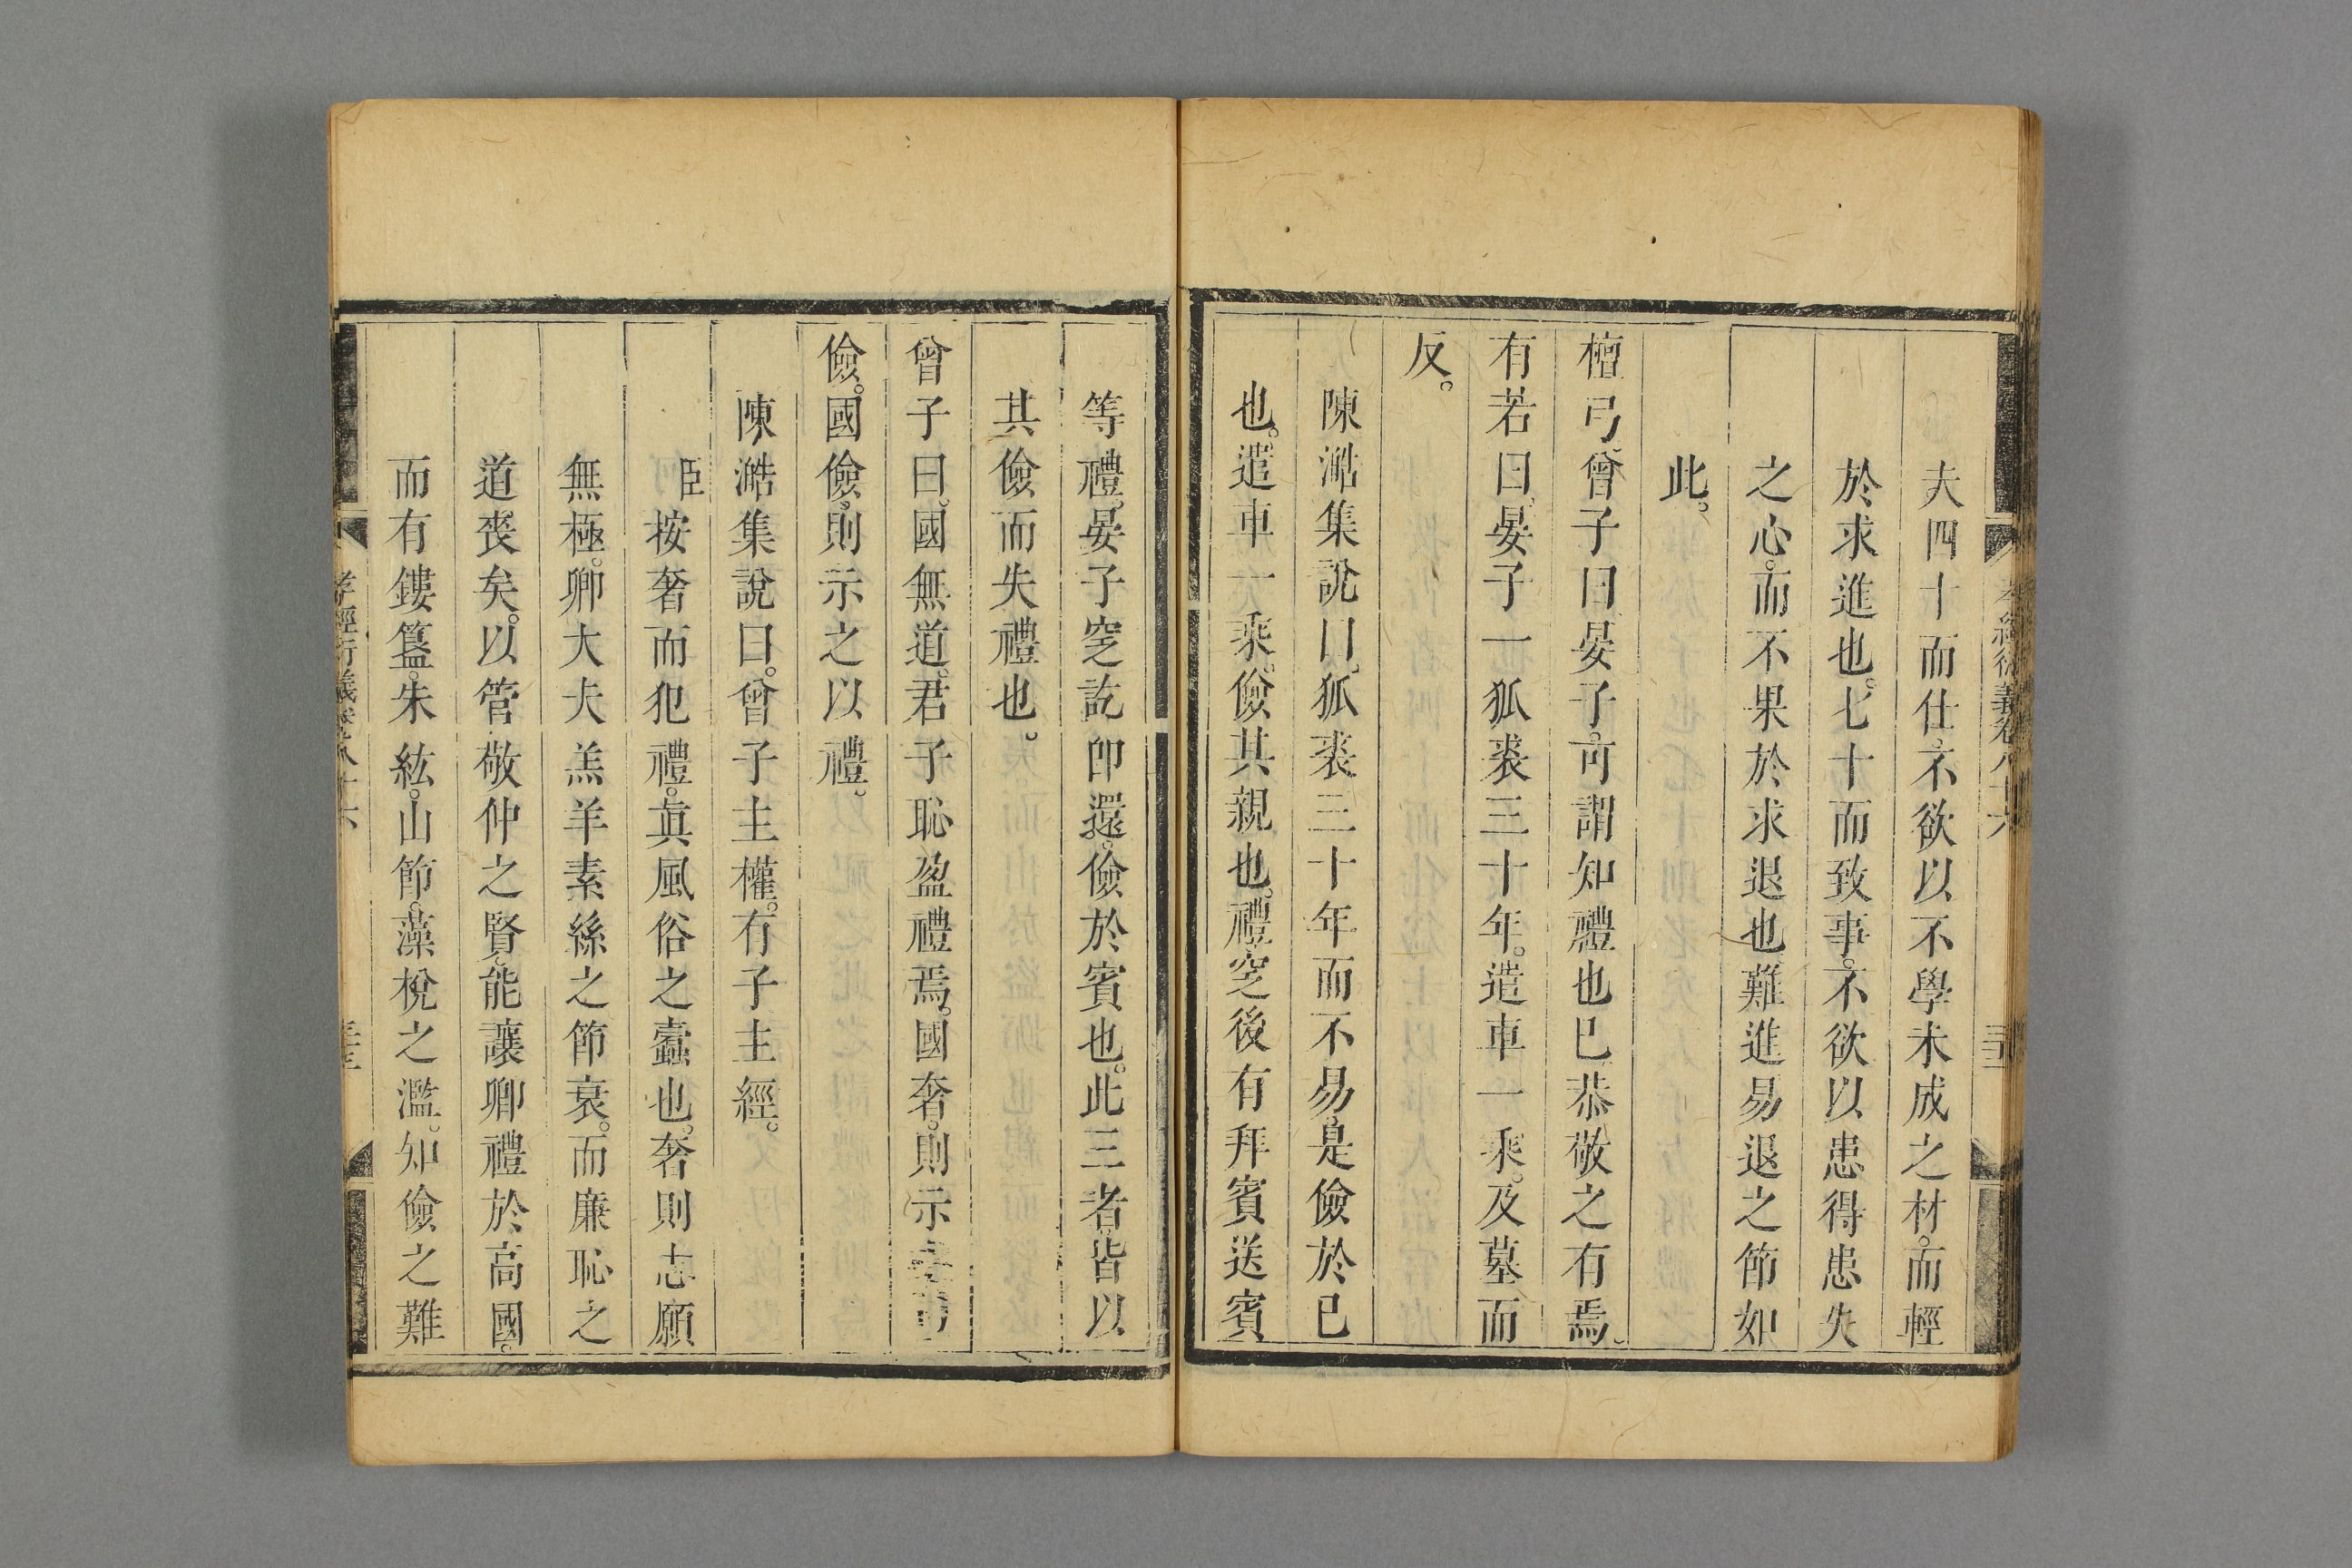 夫四十而仕。不欲以不學未成之材。而輕
於求進也。七十而致事。不欲以患得患失
之心。而不果於求退也難進易退之節如
此。
檀弓。曾子曰。晏子。可謂知禮也已恭敬之有焉。
有若曰。晏子一狐裘三十年。遣車一乘。及墓而
反。
陳澔集說曰。狐裘三十年而不易。是儉於已
也。遣車一乘。儉其親也。禮窆後有拜賓送賓
等禮。晏子窆訖卽還。儉於賓也。此三者。皆以
其儉而失禮也。
曾子曰。國無道。君子恥盈禮焉。國奢。則示
儉。國儉。則示之以禮。
陳澔集說曰。曾子主權。有子主經。
臣按奢而犯禮。眞風俗之蠹也。奢則志願
無極。卿大夫羔羊素絲之節衰。而廉恥之
道喪矣。以管敬仲之賢。能讓卿禮於高國。
而有鏤簋。朱紘。山節。藻梲之濫。知儉之難
孝經衍義卷之八十六